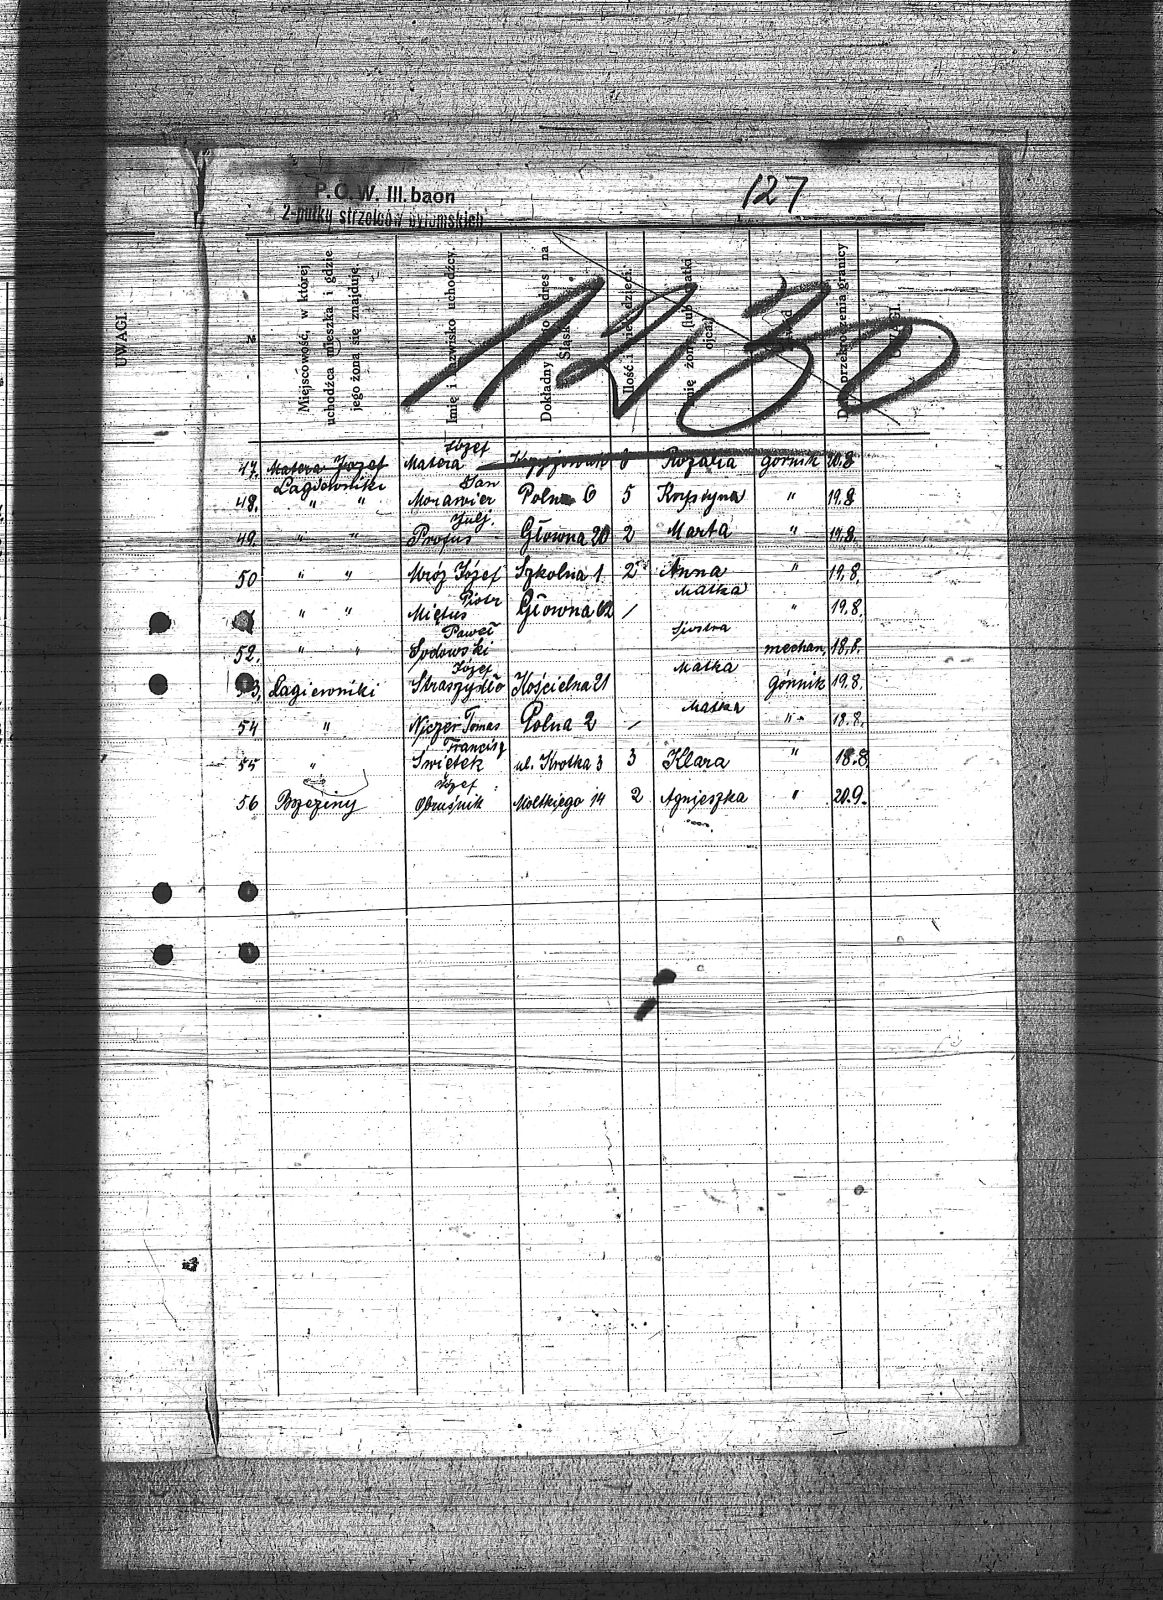 P.O.W. III. baon
127
2-pułku strzelców bytomskich
UWAGI.
№
Miejscowość, w której
uchodźca mieszka i gdzie
jego żona się znajduje.
Imię i nazwisko uchodźcy.
Dokładny adres na
Śląsku
Ilość i dzieci.
Imię żony (lub matki
ojca)
przekroczenia granicy
1230
47. Matera Józef Matera Józef Rozalia górnik 20.8
48. Łagiewniki " " Morawier Jan Polna 6 5 Krystyna " 19.8
49. " " Profus Julj. Główna 20 2 Marta " 19.8.
50 " " Mróz Józef Szkolna 1 2 Anna " 19.8.
" " Miętus Piotr Główna 62 / Matka " 19.8.
52. " " Sodowski Paweł Siostra mechan. 18.8.
53. Łagiewniki Straszydło Józef Kościelna 21 Matka górnik 19.8.
54 " Niczer Tomas Polna 2 / Matka " 18.8.
55 " Świetek Francisz ul. Krotka 3 3 Klara " 18.8
56 Brzeziny Obruśnik Józef Moltkiego 14 2 Agnieszka " 20.9.